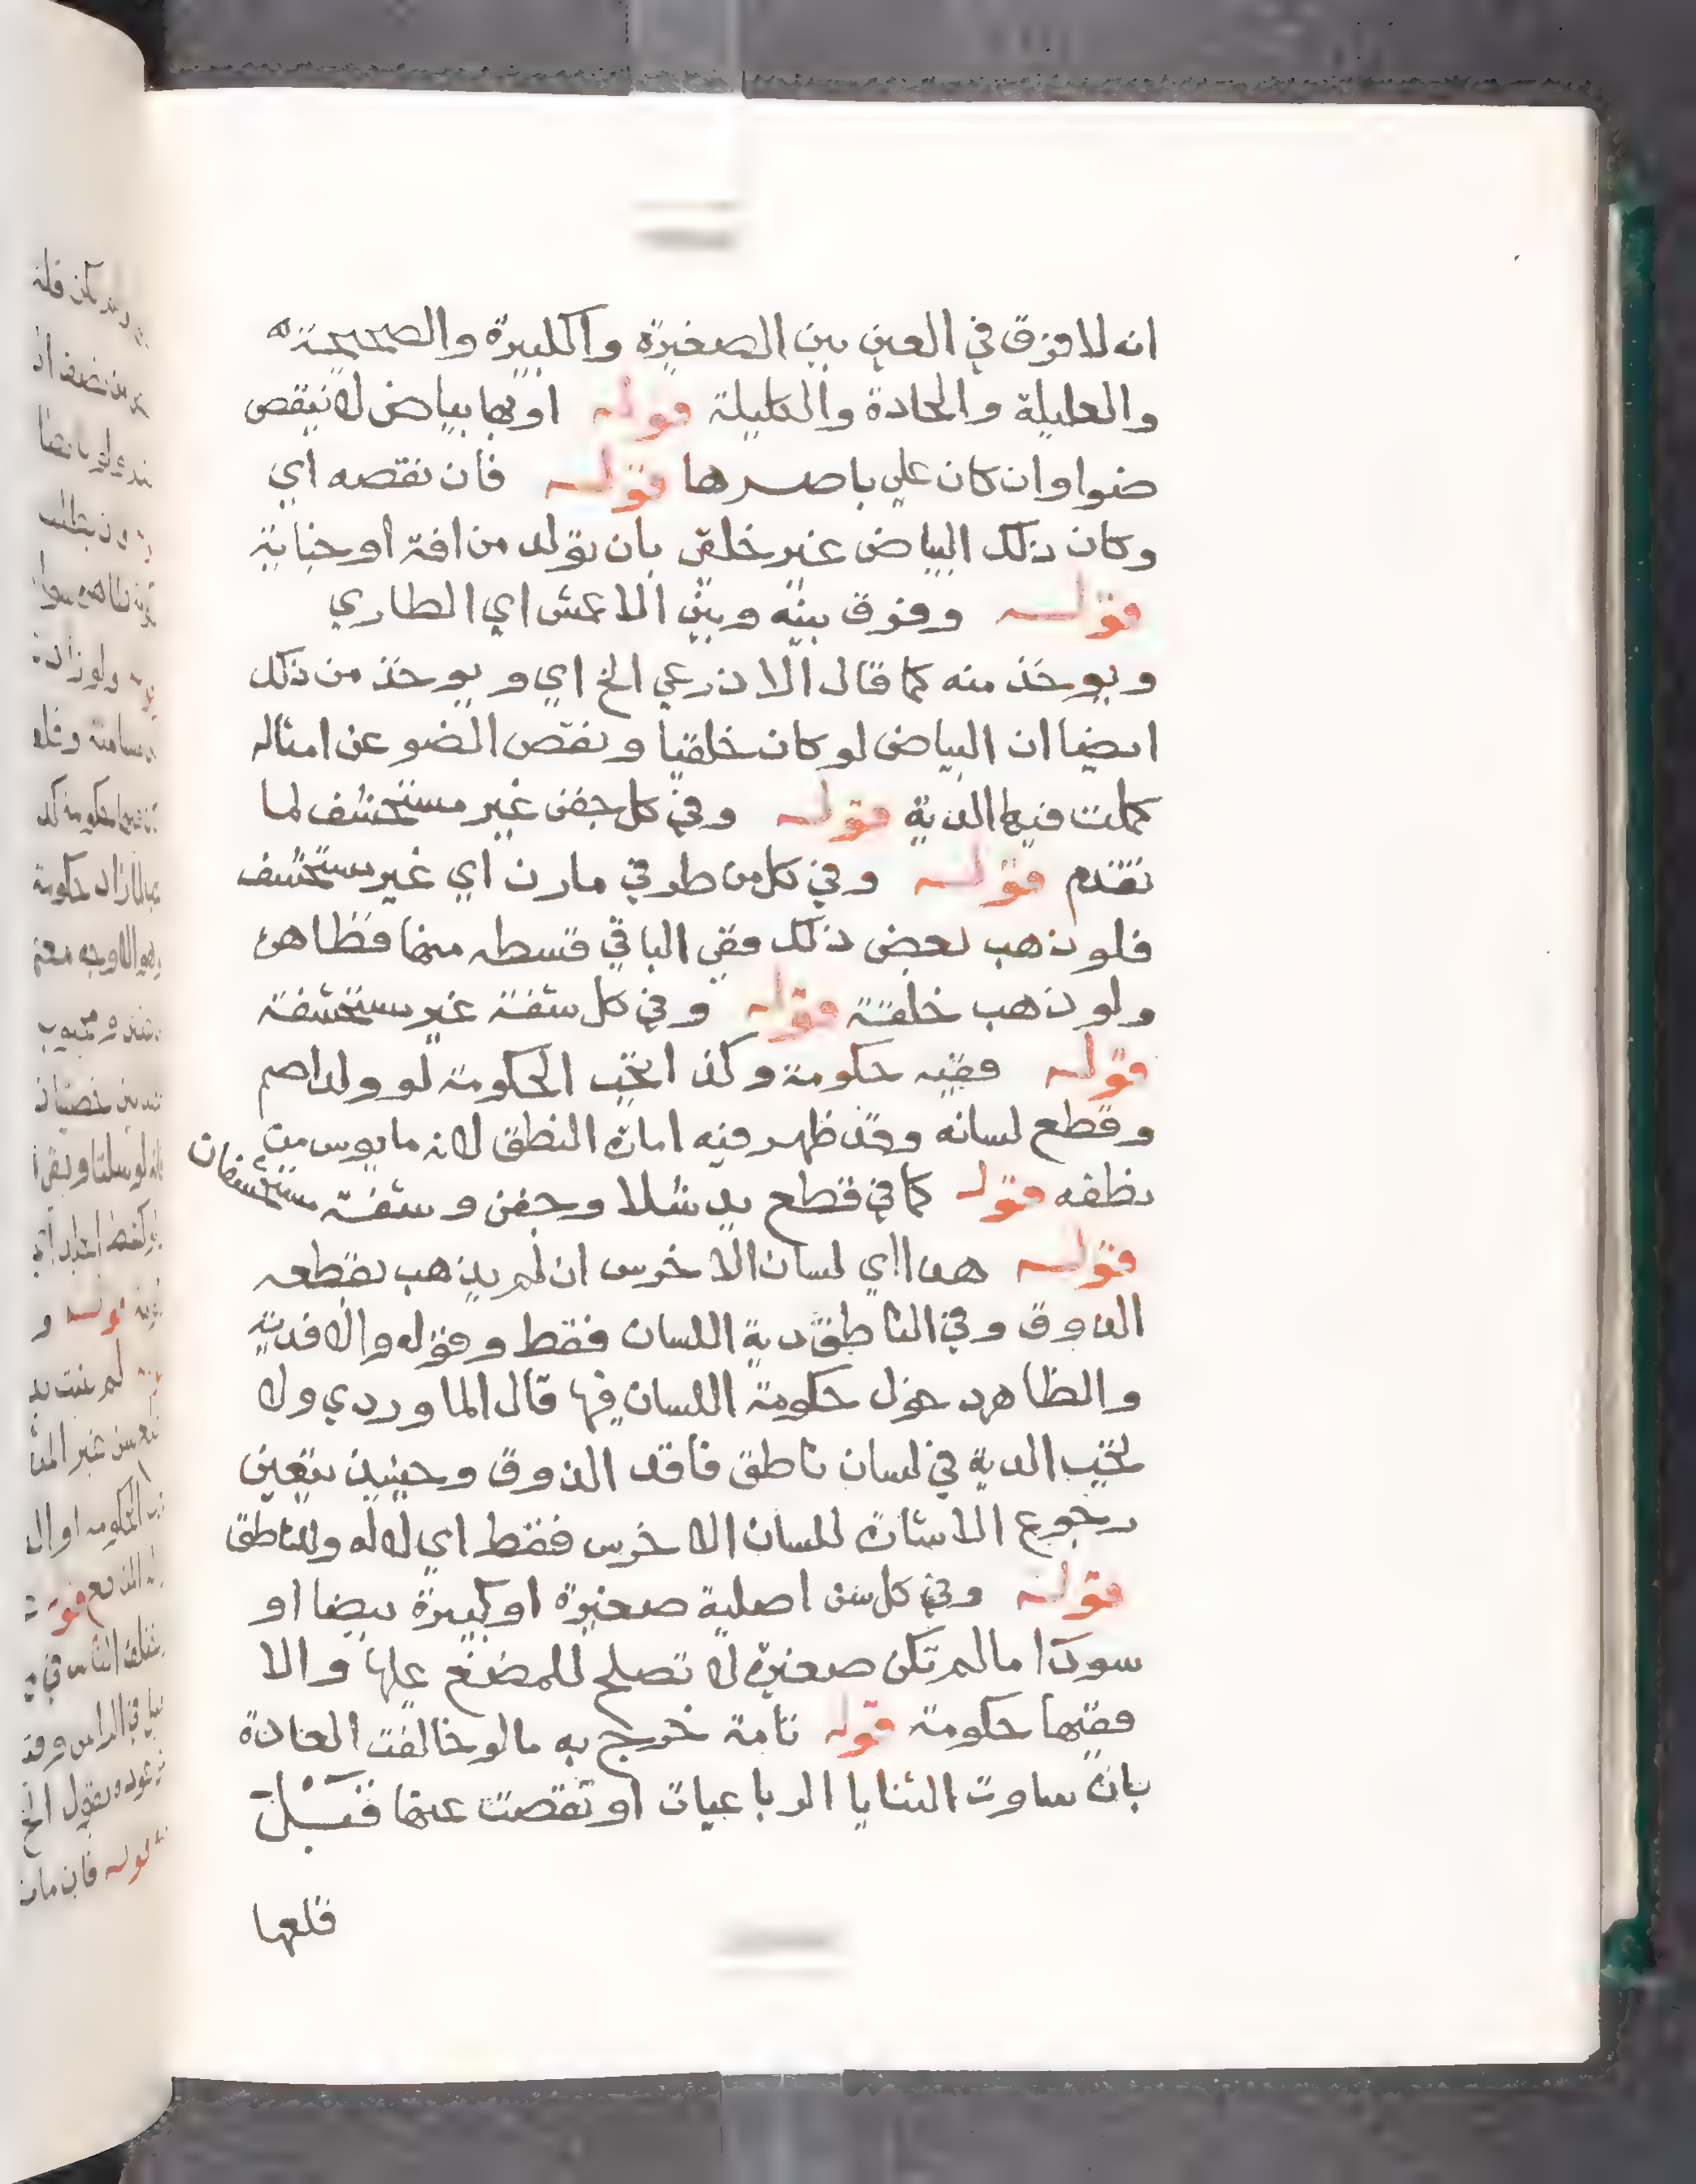 انه لا فرق في العين بين الصغيرة والكبيرة والصحيحة
والعليلة والحادة والكليلة قوله او بها بياض لا ينقص
ضوا وان كان علي باصرها قوله فان نقصه اي
وكان ذلك البياض غير خلقي بان تولد من افة او جناية
قوله وفرق بينه وبين الاعمش اي الطاري
ويوخذ منه كما قال الاذرعي الخ اي ويوخذ من ذلك
ايضا ان البياض لو كان خلقيا ونقص الضو عن امثاله
كملت فيها الدية قوله وفي كل جفن غير مستحشف لما
تقدم قوله وفي كل من طرفي مارن اي غير مستحشف
فلو ذهب بعض ذلك ففي الباقي قسطه منها فظاهره
ولو ذهب خلقة قوله وفي كل شفة غير مستحشفة
قوله ففيه حكومة وكذا تجب الحكومة لو ولد اصم
وقطع لسانه وقد ظهر فيه امارة النطق لانه مايوس من
نطقه قوله كما في قطع يد شلا وجفن وشفة مستحشفان
قوله هذا اي لسان الاخرس ان لم يذهب بقطعه
الذوق وفي الناطق دية اللسان فقط وقوله والا فدية
والظاهر دخول حكومة اللسان فيها قال الماوردي ولا
تجب الدية في لسان ناطق فاقد الذوق وحينيذ يتعين
رجوع الاشارة للسان الاخرس فقط اي لا له وللناطق
قوله وفي كل سن اصلية صغيرة او كبيرة بيضا او
سودا ما لم تكن صغيرة لا تصلح للمضغ عليها والا
ففيها حكومة قوله تامة خرج به ما لو خالفت العادة
بان ساوت الثنايا الرباعيات او نقصت عنها فقبل
قلعها